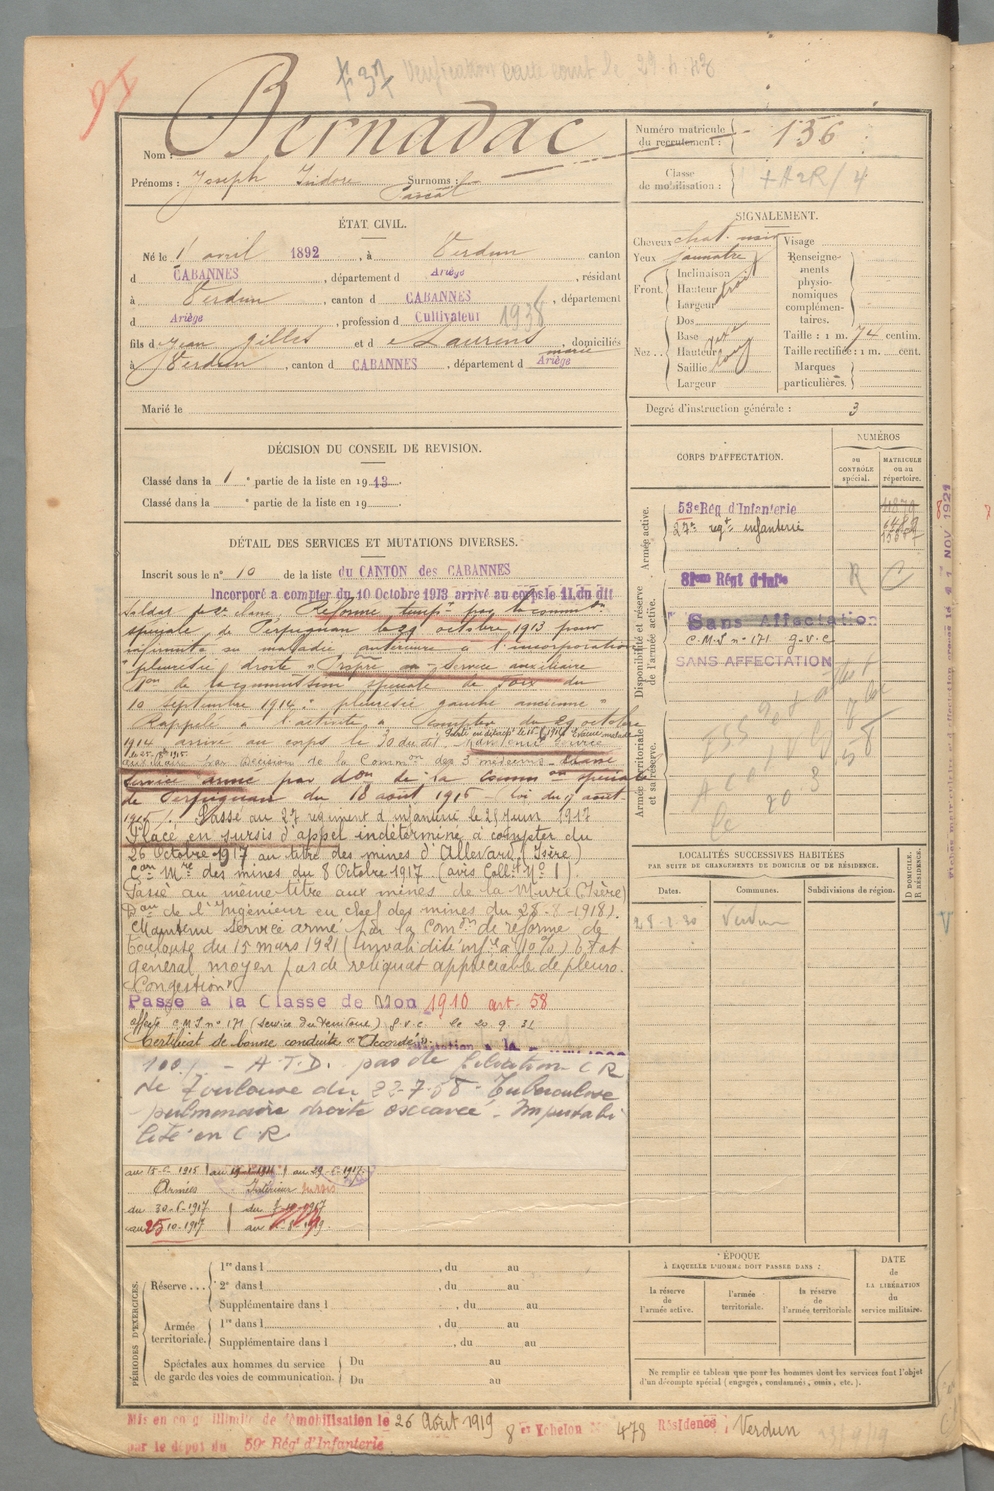 91
F 37 Verification carte cont le 29.4.42
Nom : Bernadac
Prénoms : Joseph Isidore Surnoms :
Pascal
Numéro matricule
du recrutement : 136
Classe
de mobilisation :
ÉTAT CIVIL.
Né le 1 avril 1892, à Verdun canton
d CABANNES, département d Ariège, résidant
à Verdun, canton d CABANNES, département
d Ariège, profession d Cultivateur 1938
fils de jean gilles et de Laurens, domiciliés
marie
à Verdun, canton d CABANNES, département d Ariège
Marié le
SIGNALEMENT.
Cheveux chat. noir
Yeux jaunatre
Front. Inclinaison
Hauteur
Largeur
droit
Nez. Dos
Base
Hauteur
Saillie
Largeur
long
Visage
Renseigne-
ments
physio-
nomiques
complémen-
taires.
Taille : 1 m. 74 centim.
Taille rectifiée : 1 m. cent.
Marques
particulières.
Degré d'instruction générale : 3
DÉCISION DU CONSEIL DE REVISION.
Classé dans la 1e partie de la liste en 1913.
Classé dans la e partie de la liste en 19
DÉTAIL DES SERVICES ET MUTATIONS DIVERSES.
Inscrit sous le n° 10 de la liste du CANTON des CABANNES
Incorporé a compter du 10 Octobre 1913 arrivé au corps le 11, du dit
Soldat de 2e classe, Réformé temp.re par la commis.on
spéciale de Perpignan le 29 octobre 1913 pour
infirmité ou maladie antérieure à l'incorporation
"pleurésie droite" Propre au service auxiliaire
D.on de la commission spéciale de Foix du
10 septembre 1914 "pleurésie gauche ancienne"
Rappelé à l'activité à compter du 29 octobre
1914 arrivé au corps le 30 du dit. Maintenu service
auxiliaire par décision de la Comm.on des 3 médecins. Classé
service armé par d.on de la Comm.on spéciale
de Perpignan du 18 août 1916 (loi du 17 août
1915). Passé au 27 régiment d'infanterie le 25 juin 1917
Placé en sursis d'appel indéterminé à compter du
26 Octobre 1917 au titre des mines d'Allevard (Isère)
C.on M.re des mines du 8 Octobre 1917 (avis Coll.f N° 1)
Passé au même titre aux mines de la Mure (Isère)
D.on de l'Ingénieur en chef des mines du 28-8-1918).
Maintenu service armé par la Com.on de réforme de
Toulouse du 15 mars 1921 (invalidité inf.re à 10 %) Etat
général moyen pas de reliquat appréciable de pleuro.
Congestion"
Passé à la Classe de Mon 1910 art. 58
affecté C.M.I n° 171 (service du territoire) g.v.c. le 20.9.32
Certificat de bonne conduite "Accordé".
100% - A.T.D. pas de filiation C R
de Toulouse du 22-7-58- Tuberculose
pulmonaire droite excavée. Imputabi
lité en C.R
Armées
Intérieur sursis
du 30-6-1917
au 25 10-1917
CORPS D'AFFECTATION.
NUMÉROS
au
CONTRÔLE
spécial.
MATRICULE
ou au
répertoire.
Armée active.
53e Rég d'Infanterie
27e reg.t infanterie
Disponibilité et réserve
de l'armée active.
81em Régt d'Infie R C
Sans Affectation
C.M.I n° 171 g.v.c
SANS AFFECTATION
Armée territoriale
et sa réserve.
LOCALITÉS SUCCESSIVES HABITÉES
PAR SUITE DE CHANGEMENTS DE DOMICILE OU DE RÉSIDENCE.
D DOMICILE.
R RÉSIDENCE.
Dates. Communes. Subdivisions de région.
28-1-30 Verdun
V
PÉRIODES D'EXERCICES.
Réserve... 1re dans l, du au
2e dans l, du au
Supplémentaire dans l, du au
Armée
territoriale. 1re dans l, du au
Supplémentaire dans l, du au
Spéciales aux hommes du service
de garde des voies de communication. Du au
Du au
ÉPOQUE
À LAQUELLE L'HOMME DOIT PASSER DANS :
la réserve
de
l'armée active.
l'armée
territoriale.
la réserve
de
l'armée territoriale
DATE
de
LA LIBÉRATION
du
service militaire.
Ne remplir ce tableau que pour les hommes dont les services font l'objet
d'un décompte spécial (engagés, condamnés, omis, etc.).
Mis en congé illimité de démobilisation le 26 Août 1919 8 em Echelon N° 478 Résidence : Verdun
par le dépôt du 59e Régt d'Infanterie